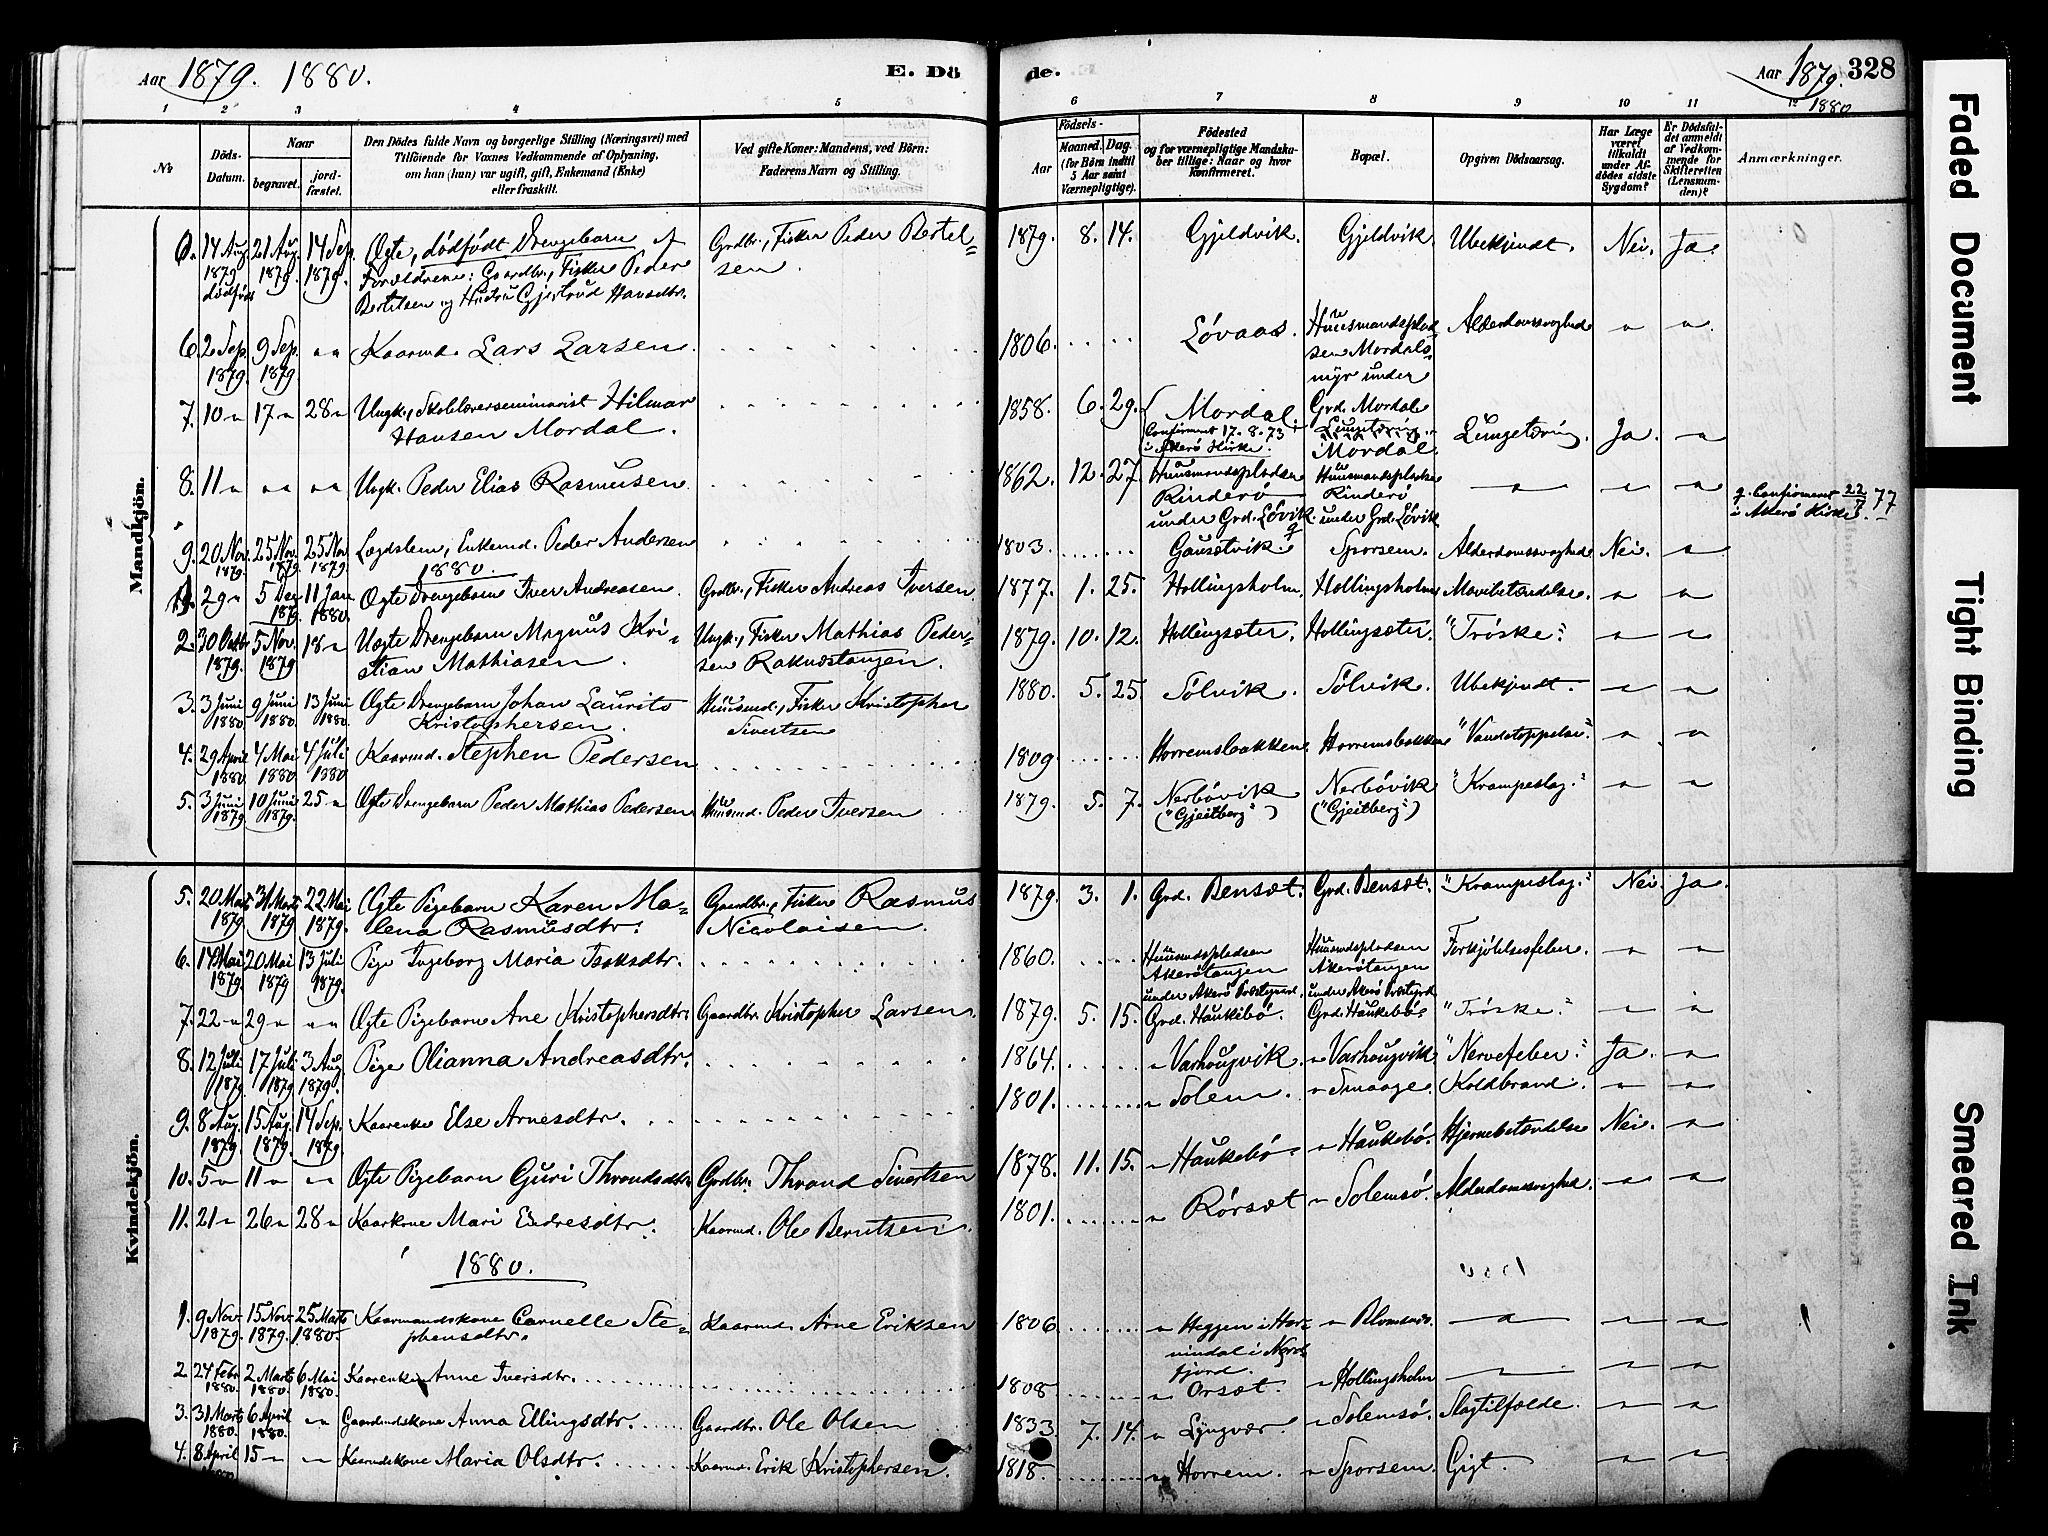 Aar 1879. 1880.
E. Dö
de.
Aar 1879. 328
1880
1 2 3 4 5 6 7 8 9 10 11 12
No
Döds-Datum.
Naar
begravet.
jord-fæstet.
Den Dödes fulde Navn og borgerlige Stilling (Næringsvei) med
Tilföiende for Voxnes Vedkommende af Oplysning,
om han (hun) var ugift, gift, Enkemand (Enke)
eller fraskilt.
Ved gifte Koner: Mandens, ved Börn:
Faderens Navn og Stilling.
Födsels-
Aar
Maaned. Dag.
(for Börn indtil
5 Aar samt
Værnepligtige).
Födested
og for værnepligtige Mandska-
ber tillige: Naar og hvor
konfirmeret.
Bopæl.
Opgiven Dödsaarsag.
Har Læge
været
tilkaldt
under Af-
dödes sidste
Sygdom?
Er Dödsfal-
det anmeldt
af Vedkom-
mende for
Skifteretten
(Lensman-
den)?
Anmærkninger.
Mandkjön.
14 Aug. 1879 dödfödt 21 Aug. 1879. 14 Sep. 1879. Ægte, dödfödt Drengebarn af Grdbr., Fisker Peder Bertel=sen. 1879. 8. 14. Gjeldvik. Gjeldvik. Ubekjendt. Nei. Ja.
Forældrene: Gaardbr., Fisker Peder
Bertelsen og Hustru Gjertrud Hansdtr.
6. 2 Sep. 1879. 9 Sep. 1879. " " Kaarmd. Lars Larsen. 1806. Lövaas. Huusmandsplad
sen Mordals-
myr under
Grd. Mordal. Alderdomssvaghed " "
7. 10 " 17 " 28 " Ungk., Skolelærerseminarist Hilmar
Hansen Mordal. 1858. 6. 29. Mordal. Mordal. Lungetæring. Ja. "
Confirmert 17. 8. 73
i Akerö Kirke.
8. 11 " " " " " Ungk. Peder Elias Rasmusen. 1862. 12. 27. Huusmandspladsen
Rinderö
under Grd. Lövik. Huusmandspladsen
Rinderö
under Grd. Lövik " " " Confirmeret 22/7 77
i Akerö Kirke.
9. 20 Nov. 1879. 25 Nov. 1879. 25 Nov. 1879 Lægdslem, Enkemd. Peder Andersen 1803. Gausetvik. Sporsem. Alderdomssvaghed Nei. "
1880.
1. 29 " 5 Dec. 1879. 11 Jan. 1880. Ægte Drengebarn Iver Andreasen. Grdbr., Fisker Andreas Iversen. 1877. 1. 25. Hollingsholm. Hollingsholm. Mavebetændelse. " "
2. 30 Octbr. 1879. 5 Nov. 1879. 18 " Uægte Drengebarn Magnus Kri-
stian Mathiasen. Ungk., Fisker Mathias Peder=
sen Raknestangen. 1879. 10. 12. Hollingsæter. Hollingsæter. "Tröske." " "
3. 3 Juni 1880. 9 Juni 1880. 13 Juni 1880. Ægte Drengebarn Johan Laurits
Kristophersen. Huusmd., Fisker Kristopher
Sivertsen 1880. 5. 25. Sölvik. Sölvik. Ubekjendt. " "
4. 29 April 1880. 4 Mai 1880. 4 Juli 1880 Kaarmd. Stephen Pedersen 1809. Horremsbakken. Horremsbakken "Vandstoppelse." " "
5. 3 Juni 1879. 10 Juni 1879. 25 " Ægte Drengebarn Peder Mathias Pedersen Huusmd. Peder Iversen 1879. 5. 7. Nerbövik
("Gjeitberg") Nerbövik
("Gjeitberg") "Krampeslag." " "
Kvindekjön.
5. 20 Marts 1879 31 Marts 1879 22 Mai 1879. Ægte Pigebarn Karen Ma=
lena Rasmusdtr. Gaardbr., Fisker Rasmus
Nicolaisen. 1879. 3. 1. Grd. Bensæt. Grd. Bensæt. "Krampeslag." Nei. Ja
6. 14 Mai 1879. 20 Mai 1879 13 Juli 1879. Pige Ingeborg Maria Isaksdtr. 1860. Huusmdspladsen
Akerötangen
under Akerö Præstegaard. Huusmdspladsen
Akerötangen
under Akerö Præstegrd. Forkjölelsesfeber. " "
7. 22 " 29 " " " Ægte Pigebarn Ane Kristophersdtr. Gaardbr. Kristopher Larsen. 1879. 5. 15. Grd. Haukebö. Grd. Haukebö. "Tröske." " "
8. 12 Juli 1879. 17 Juli 1879. 3 Aug. 1879. Pige Olianna Andreasdtr. 1864. " Varhougvik. " Varhougvik. "Nervefeber." Ja. "
9. 8 Aug. 1879. 15 Aug. 1879. 14 Sep. 1879. Kaarenke Else Arnesdtr. 1801. " Solem. " Smaage. Koldbrand. " "
10. 5 " 11 " " " Ægte Pigebarn Guri Throndsdtr. Grdbr. Thrond Sivertsen 1878. 11. 15. " Haukebö " Haukebö. Hjernebetændelse Nei. "
11. 21 " 26 " 28 " Kaarkone Mari Endresdtr. Kaarmd. Ole Berntsen. 1801. " Rörsæt " Solemsö. Alderdomssvaghed. " "
1880.
1. 9 Nov. 1879. 15 Nov. 1879. 25 Marts 1880. Kaarmandskone Carnelle Ste=
phensdtr. Kaarmd. Arne Eriksen 1806. " Heggen i Hor-
nindal i Nord-
fjord. " " " "
2. 27 Febr. 1880. 2 Marts 1880. 6 Mai 1880. Kaarenke Anne Iversdtr. 1808. " Orsæt. " Hollingsholm " " "
3. 31 Marts 1880. 6 April 1880. " Gaardmdskone Anna Ellingsdtr. Gaardbr. Ole Olsen 1833. 7. 14. " Lyngvær. " Solemsö. Slagtilfælde. " "
4. 8 April 15 " " Kaarmdskone Maria Olsdtr. Kaarmd. Erik Kristophersen. 1818. " Horrem. " Sporsem. Gigt. " "
Faded Document
Tight Binding
Smeared Ink